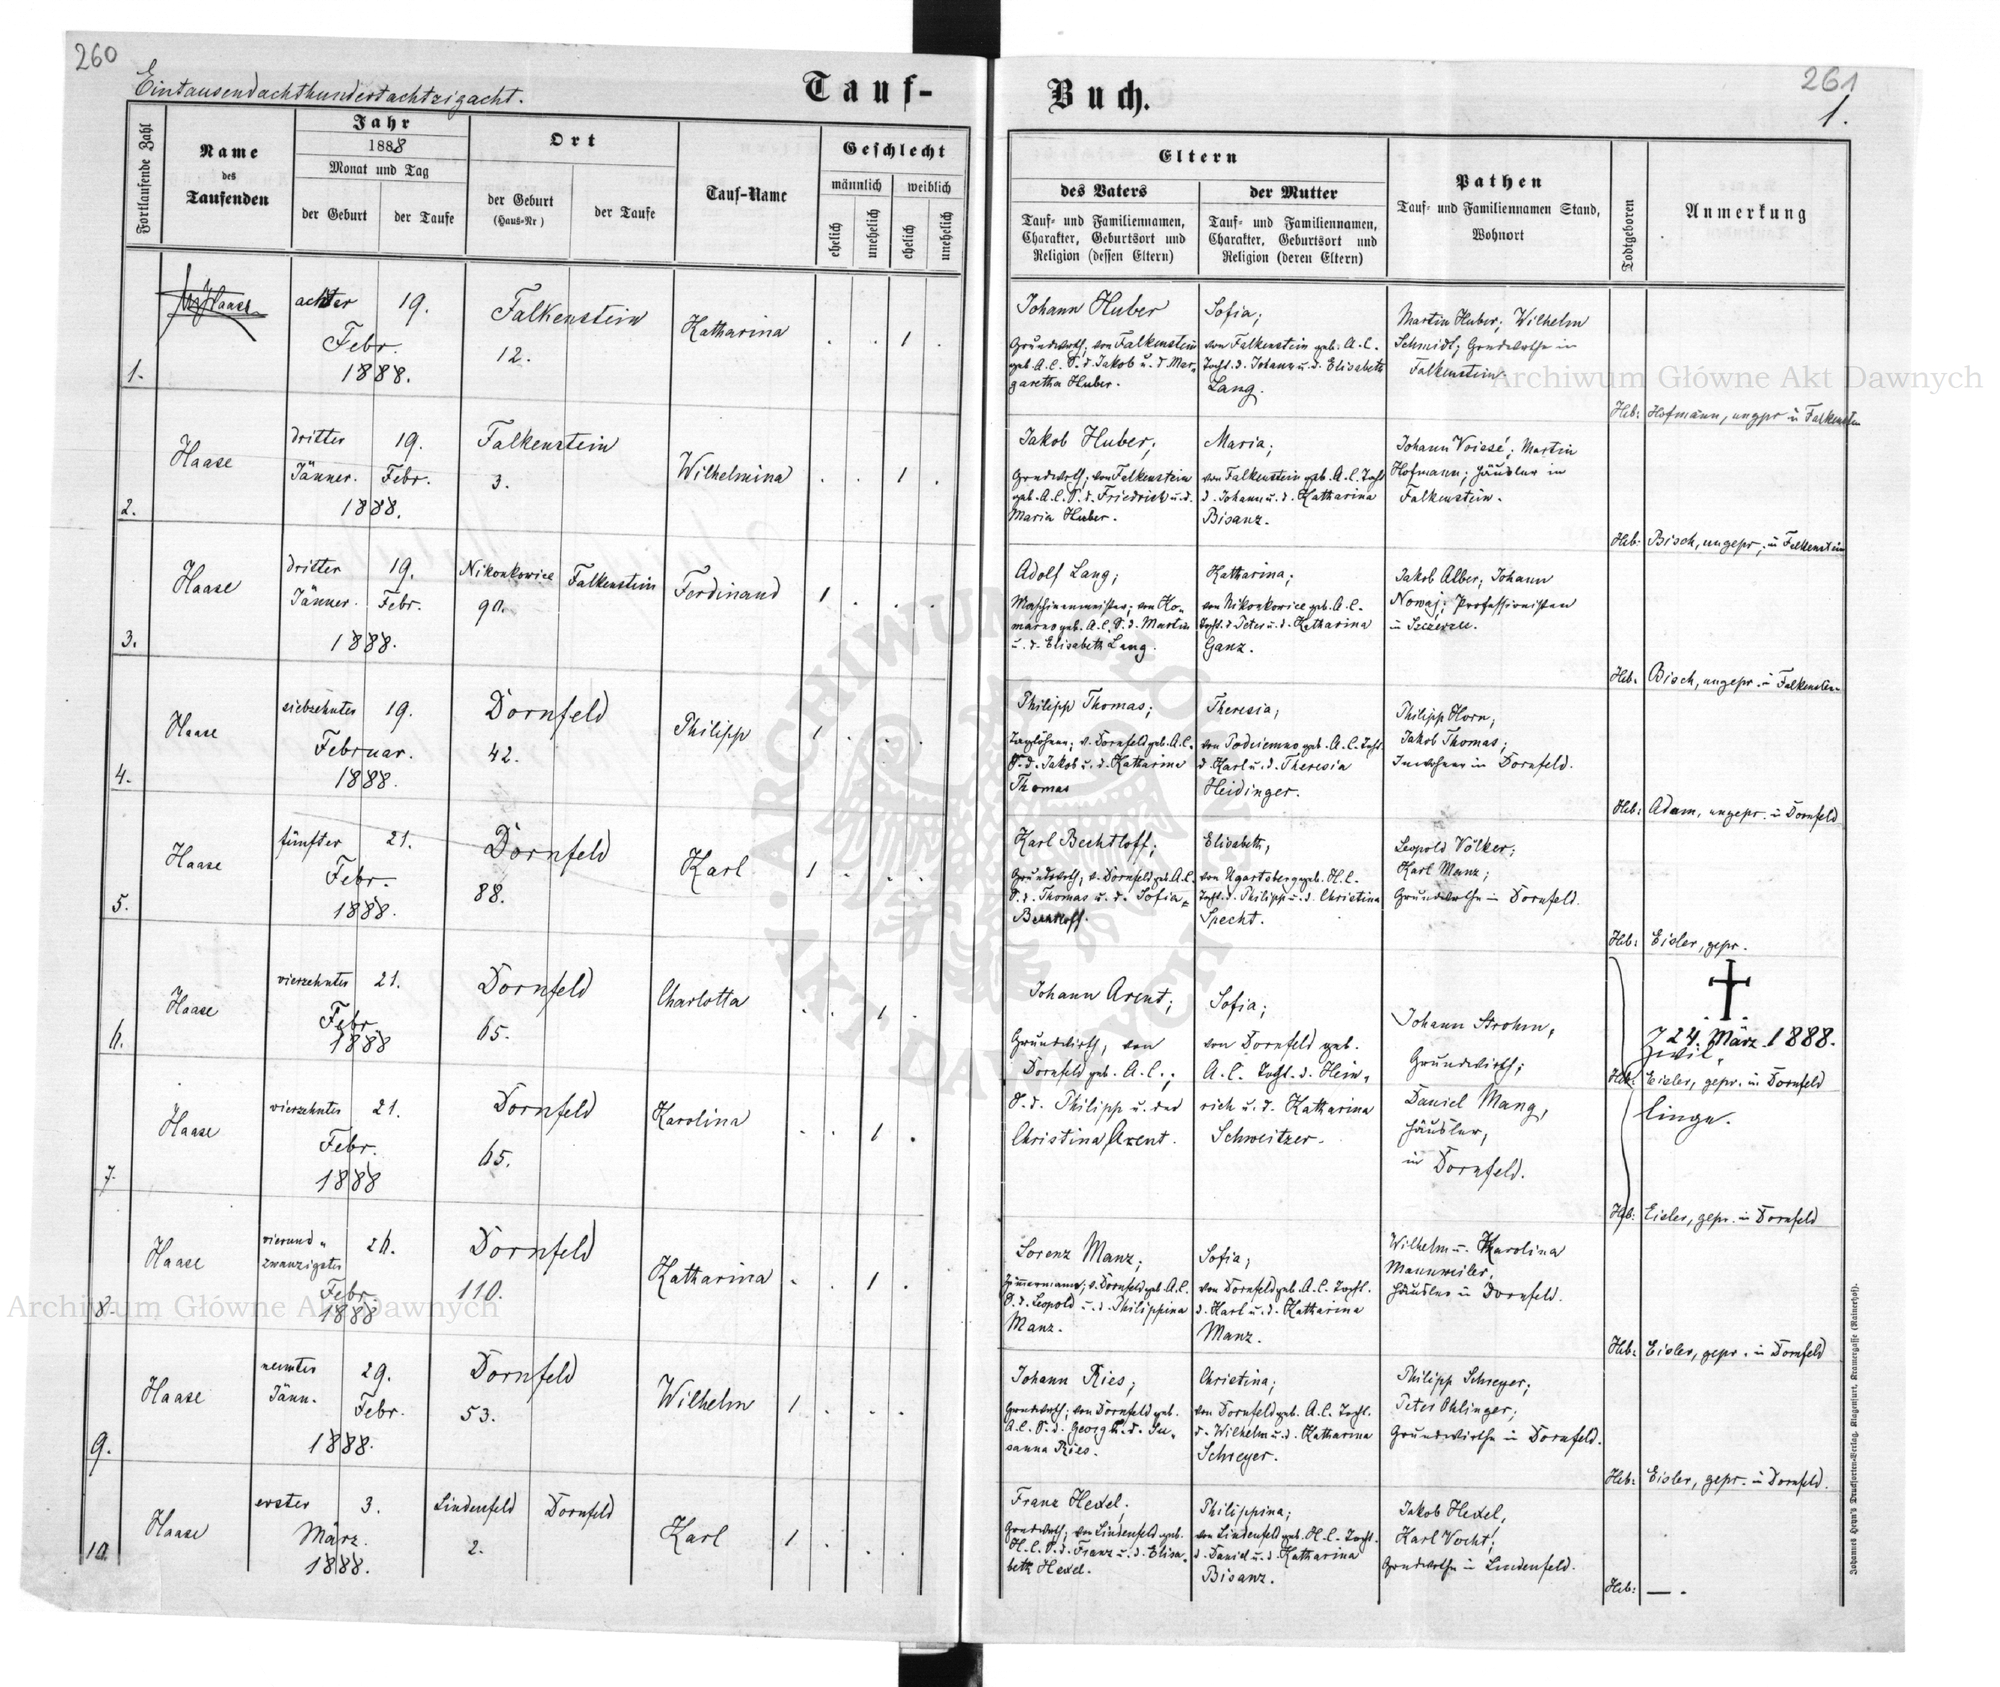 260
Eintausendachthundertachtzigacht.
Tauf-
Fortlaufende Zahl
Name
des
Taufenden
Jahr
1888
Monat und Tag
der Geburt
der Taufe
Ort
der Geburt
(Haus-Nr)
der Taufe
Tauf-Name
Geschlecht
männlich
weiblich
ehelich
unehelich
ehelich
unehelich
1.
Haase
achter
19.
Febr.
1888.
Falkenstein
12.
Katharina
. . 1 .
2.
Haase
dritter
19.
Jänner. Febr.
1888.
Falkenstein
3.
Wilhelmina
. . 1 .
3.
Haase
dritter
19.
Jänner. Febr.
1888.
Nikonkowice
90.
Falkenstein
Ferdinand
1 . . .
4.
Haase
siebzehnter
19.
Februar.
1888.
Dornfeld
42.
Philipp
1 . . .
5.
Haase
fünfter
21.
Febr.
1888.
Dornfeld
88.
Karl
1 . . .
6.
Haase
vierzehnter
21.
Febr.
1888
Dornfeld
65.
Charlotta
. . 1 .
7.
Haase
vierzehnter
21.
Febr.
1888
Dornfeld
65.
Karolina
. . 1 .
8.
Haase
vierund„
zwanzigster
26.
Febr.
1888
Dornfeld
110.
Katharina
. . 1 .
9.
Haase
neunter
29.
Jänn.
Febr.
1888.
Dornfeld
53.
Wilhelm
1 . . .
10.
Haase
erster
3.
März.
1888.
Lindenfeld
2.
Dornfeld
Karl
1 . . .
261
1.
Buch.
Eltern
des Vaters
Tauf- und Familiennamen,
Charakter, Geburtsort und
Religion (dessen Eltern)
der Mutter
Tauf- und Familiennamen,
Charakter, Geburtsort und
Religion (deren Eltern)
Pathen
Tauf- und Familiennamen Stand,
Wohnort
Todtgeboren
Anmerkung
Johann Huber
Grundwirth; von Falkenstein
geb. A.C. S. d. Jakob u. d. Mar„
garetha Huber.
Sofia;
von Falkenstein geb. A.C.
Tocht. d. Johann u. d. Elisabeth
Lang.
Martin Huber; Wilhelm
Schmidt; Grndwrthe in
Falkenstein.
Heb: Hofmann, ungepr in Falkenstein
Jakob Huber;
Grndwrth; von Falkenstein
geb. A.C. S. d. Friedrich u. d.
Maria Huber.
Maria;
von Falkenstein geb. A.C. Tocht
d. Johann u. d. Katharina
Bisanz.
Johann Voissé; Martin
Hofmann; Häusler in
Falkenstein.
Heb: Bisch, ungepr, in Falkenstein
Adolf Lang;
Maschinenmeister; von Ko„
marno geb. A.C. S. d. Martin
u. d. Elisabeth Lang.
Katharina;
von Nikonkowice geb. A.C.
Tocht. d. Peter u. d. Katharina
Ganz.
Jakob Alber; Johann
Nowaj; Professionisten
in Szczerzec.
Heb: Bisch, ungepr. in Falkenstein
Philipp Thomas;
Taglöhner; v. Dornfeld geb. A.C.
S. d. Jakob u. d. Katharina
Thomas
Theresia;
von Podciemno geb. A.C. Tocht.
d. Karl u. d. Theresia
Heidinger.
Philipp Horn;
Jakob Thomas;
Inwohner in Dornfeld.
Heb: Adam, ungepr. in Dornfeld
Karl Bechtloff;
Grundwrth; v. Dornfeld geb. A.C.
S. d. Thomas u. d. Sofia
Bechtloff.
Elisabeth;
von Ugartsberg geb. H.C.
Tocht. d. Philipp u. d. Christina
Specht.
Leopold Völker;
Karl Manz;
Grundwrthe in Dornfeld.
Heb: Eisler, gepr.
Johann Arent;
Grundwirth, von
Dornfeld geb. A.C.;
S. d. Philipp u. der
Christina Arent.
Sofia;
von Dornfeld geb.
A.C. Tocht. d. Hein„
rich u. d. Katharina
Schweitzer.
Johann Strohm,
Grundwirth;
Daniel Mang,
Häusler,
in Dornfeld.
24. März 1888.
Zwil„
Heb: Eisler, gepr. in Dornfeld
linge.
Heb: Eisler, gepr. in Dornfeld
Lorenz Manz;
Zimmermann; v. Dornfeld geb. A.C.
S. d. Leopold u. d. Philippina
Manz.
Sofia;
von Dornfeld geb. A.C. Tocht.
d. Karl u. d. Katharina
Manz.
Wilhelm u. Karolina
Mannweiler;
Häusler in Dornfeld.
Heb: Eisler, gepr. in Dornfeld
Johann Ries;
Grndwrth; von Dornfeld geb.
A.C. S. d. Georg u. d. Su„
sanna Ries.
Christina;
von Dornfeld geb. A.C. Tocht.
d. Wilhelm u. d. Katharina
Schreyer.
Philipp Schreyer;
Peter Ohlinger;
Grundwirthe in Dornfeld.
Heb: Eisler, gepr. in Dornfeld.
Franz Hexel;
Grndwrth; von Lindenfeld geb.
H.C. S. d. Franz u. d. Elisa„
beth Hexel.
Philippina;
von Lindenfeld geb. H.C. Tocht.
d. Daniel u. d. Katharina
Bisanz.
Jakob Hexel,
Karl Vocht;
Grndwrthe in Lindenfeld.
Heb: — .
Johannes Heyn's Drucksorten-Verlag, Klagenfurt, Kramergasse (Rainerhof).
Archiwum Główne Akt Dawnych
Archiwum Główne Akt Dawnych
ARCHIWUM GŁÓWNE AKT DAWNYCH